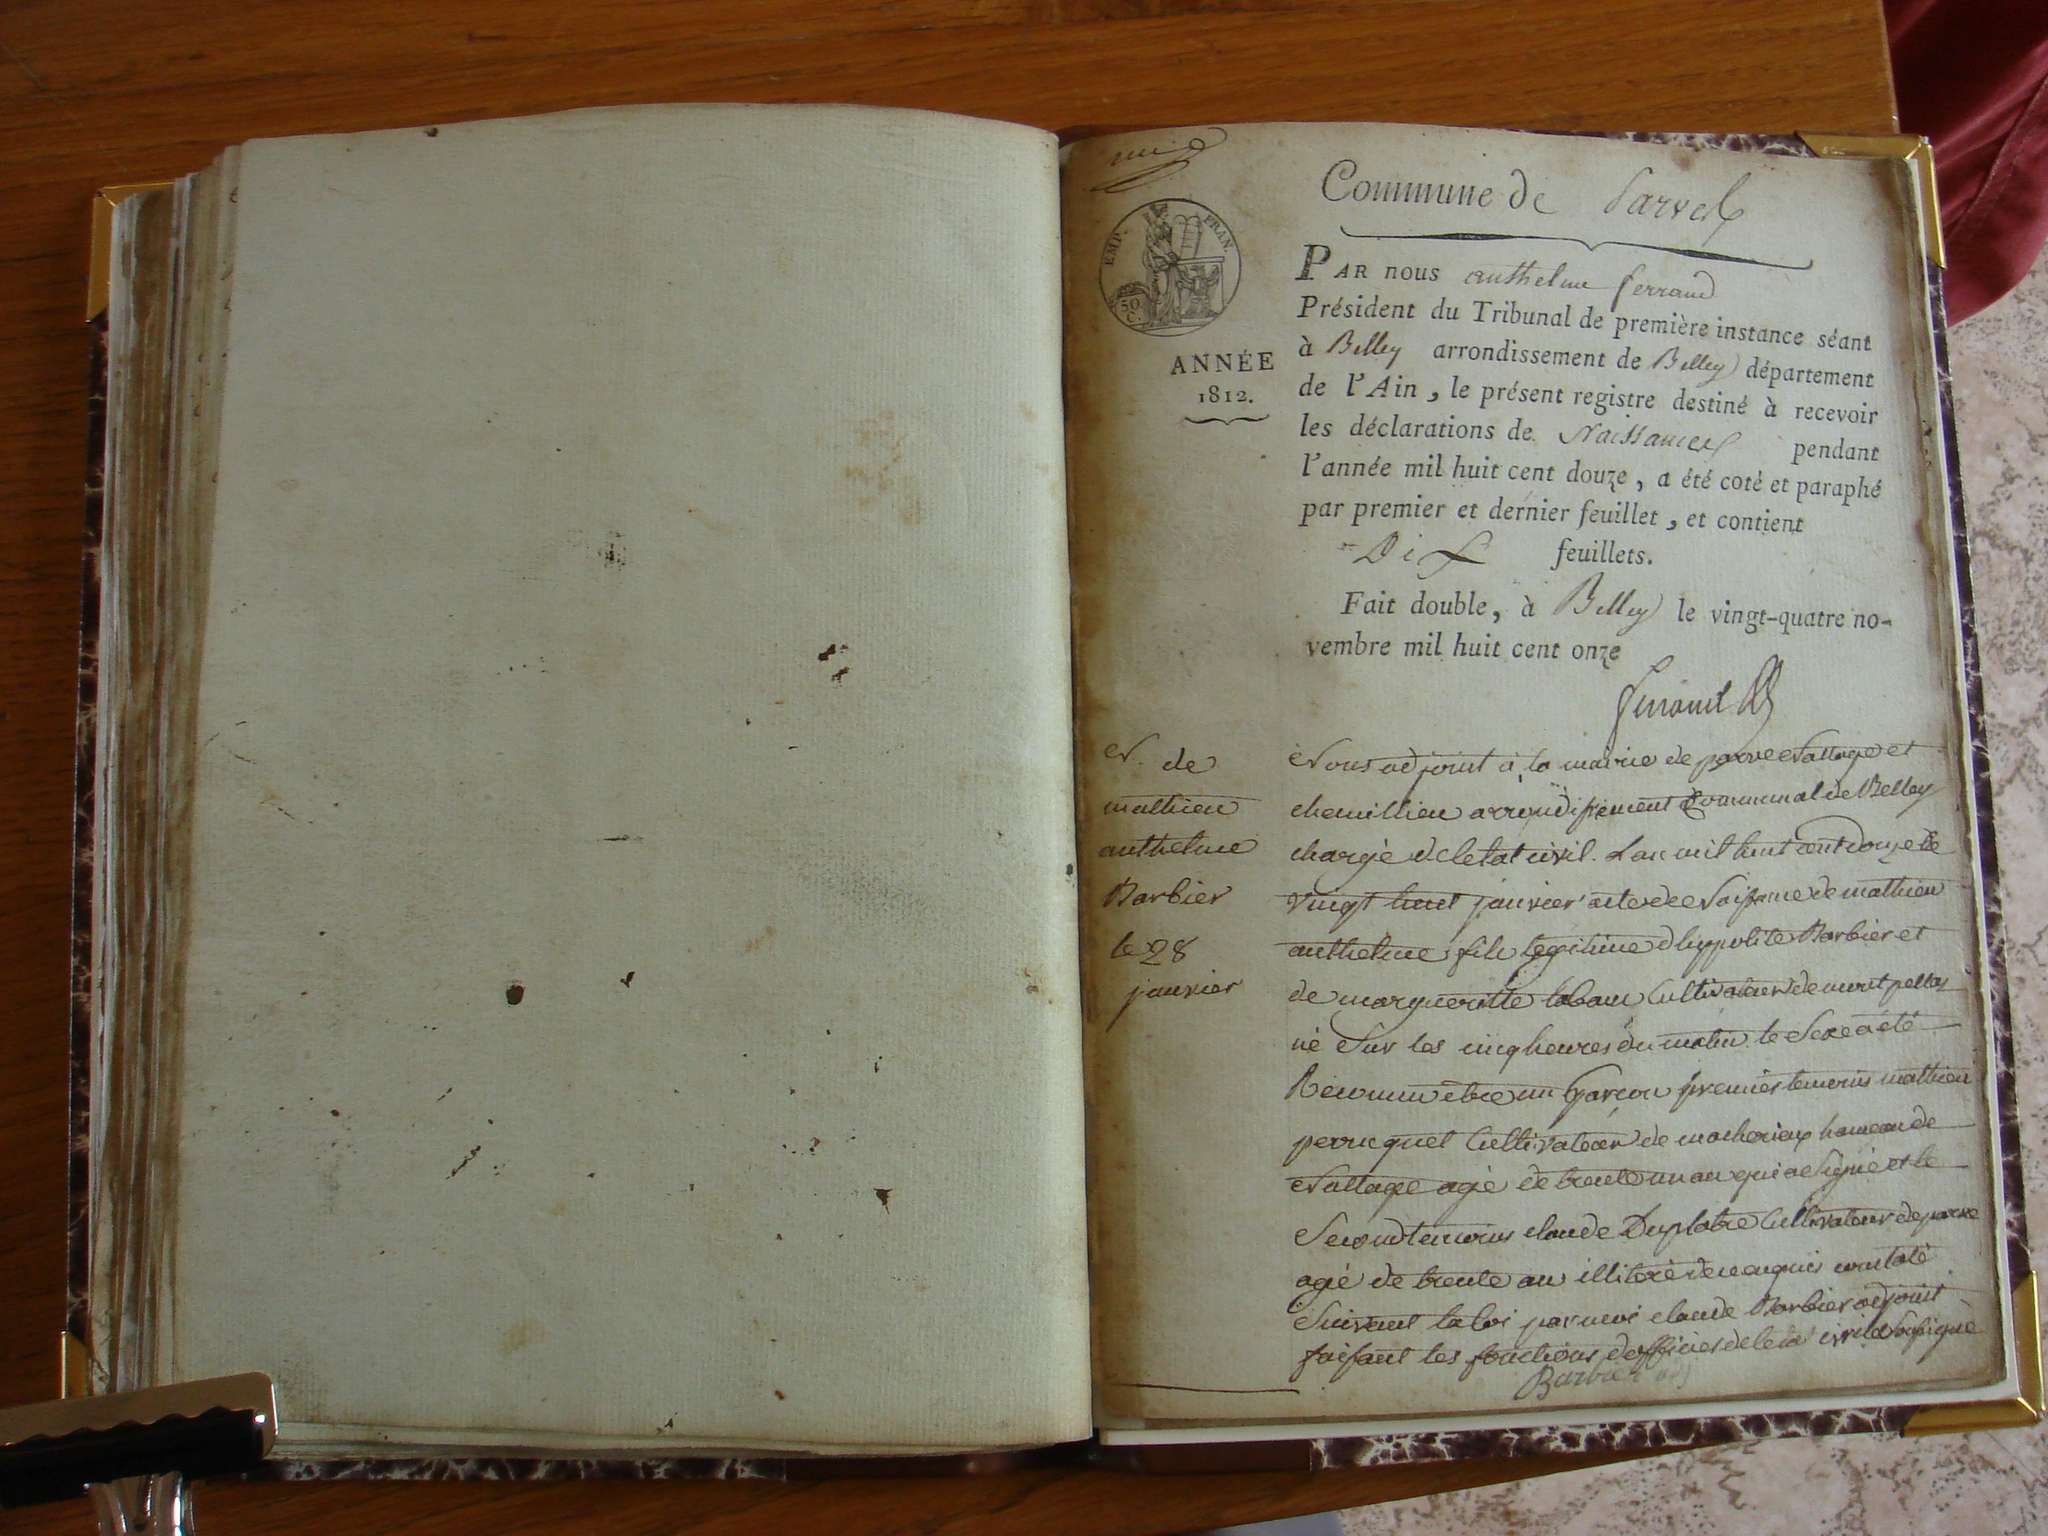 Commune de Parves
EMP. FRAN.
50
C.
ANNÉE
1812.
PAR nous anthelme ferrand
Président du Tribunal de première instance séant
à Belley arrondissement de Belley département
de l'Ain, le présent registre destiné à recevoir
les déclarations de Naissances pendant
l'année mil huit cent douze, a été coté et paraphé
par premier et dernier feuillet, et contient
Dix feuillets.
Fait double, à Belley le vingt-quatre no-
vembre mil huit cent onze
ferrand
N. de
mathieu
anthelme
Barbier
le 28
janvier
Nous adjoint à la mairie de parve Nattage et
chemillieu arrondissement Communal de Belley
chargé de letat civil. Lan mil huit cent douze le
vingt huit janvier acte de Naissance de mathieu
anthelme fils legitime dhyppolite Barbier et
de margueritte Cultivateur de
né Sur les cinq heures du matin le Sexe a été
Reconnu être un Garçon premier temoins mathieu
perruquet Cultivateur de hameau de
Nattage agé de trente un an qui a Signé et le
Second temoins claude Duplatre Cultivateur de parve
agé de trente an illiteré de ce enquis constaté
Suivant la loi par moi claude Barbier adjoint
faisant les fonctions dofficier de letat civil Soussigné
Barbier adj